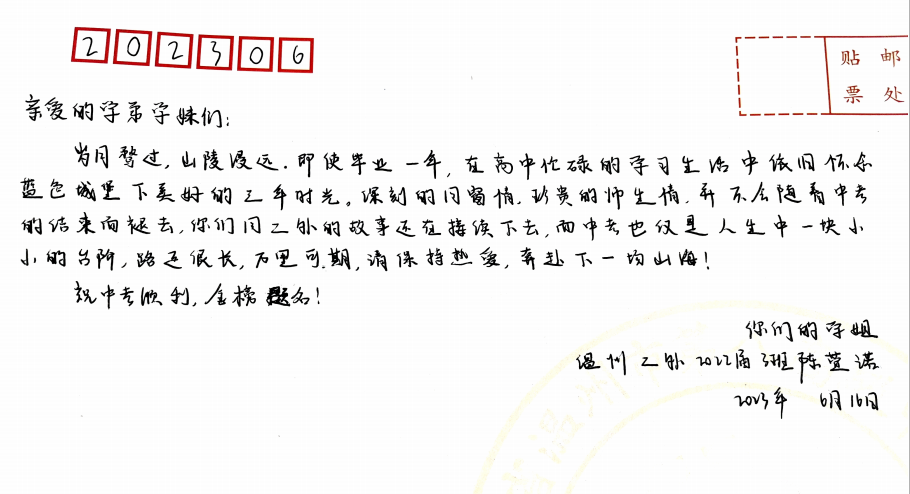 202306
贴 邮
票 处
亲爱的学弟学妹们:
岁月骛过,山陵浸远.即使毕业一年,在高中忙碌的学习生活中依旧怀念
蓝色城堡下美好的三年时光。深刻的同窗情,珍贵的师生情,并不会随着中考
的结束而褪去,你们同二外的故事还在持续下去,而中考也仅是人生中一块小
小的台阶,路还很长,万里可期,请保持热爱,奔赴下一场山海!
祝中考顺利,金榜题名!
你们的学姐
温州二外2022届3班陈萱诺
2023年 6月16日